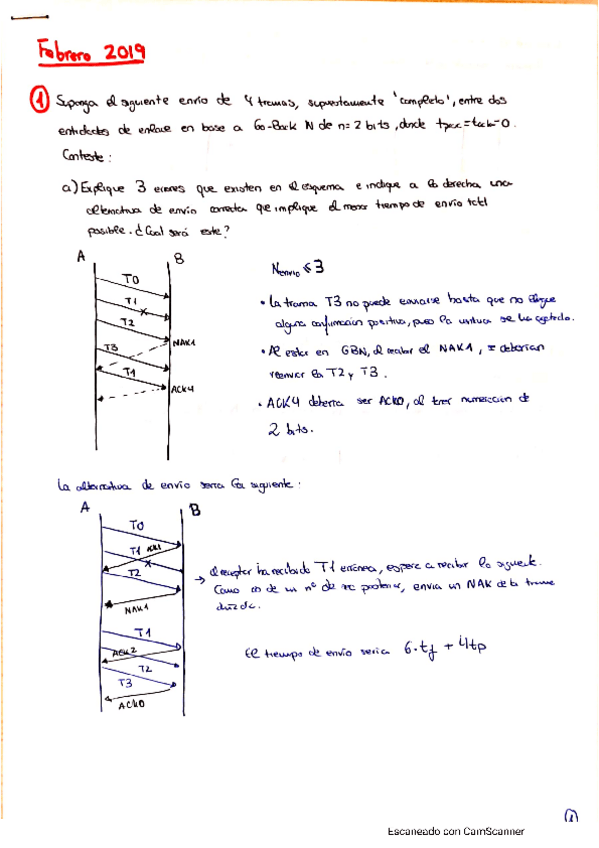 Febrero 2019
1 Suponga el siguiente envío de 4 tramas, supuestamente 'completo', entre dos
entidades de enlace en base a Go-Back N de n=2 bits, donde tproc=tack=0.
Conteste:
a) Explique 3 errores que existen en el esquema e indique a la derecha una
alternativa de envío correcta que implique el menor tiempo de envío total
posible. ¿Cuál será este?
A B
T0
T1
T2
NAK1
T3
T1
ACK4
Nenvio ≤ 3
• La trama T3 no puede enviarse hasta que no llegue
alguna confirmación positiva, pues la ventana se ha agotado.
• Al estar en GBN, al recibir el NAK1, se deberían
reenviar la T2 y T3.
• ACK4 debería ser ACK0, al tener numeración de
2 bits.
La alternativa de envío sería la siguiente:
A B
T0
T1 ACK1
T2
NAK1
T1
ACK2
T2
T3
ACK0
→ El receptor ha recibido T1 errónea, espera a recibir la siguiente.
Como es de un nº de sec posterior, envia un NAK de la trama
El tiempo de envío sería 6·tf + 4tp
1
Escaneado con CamScanner